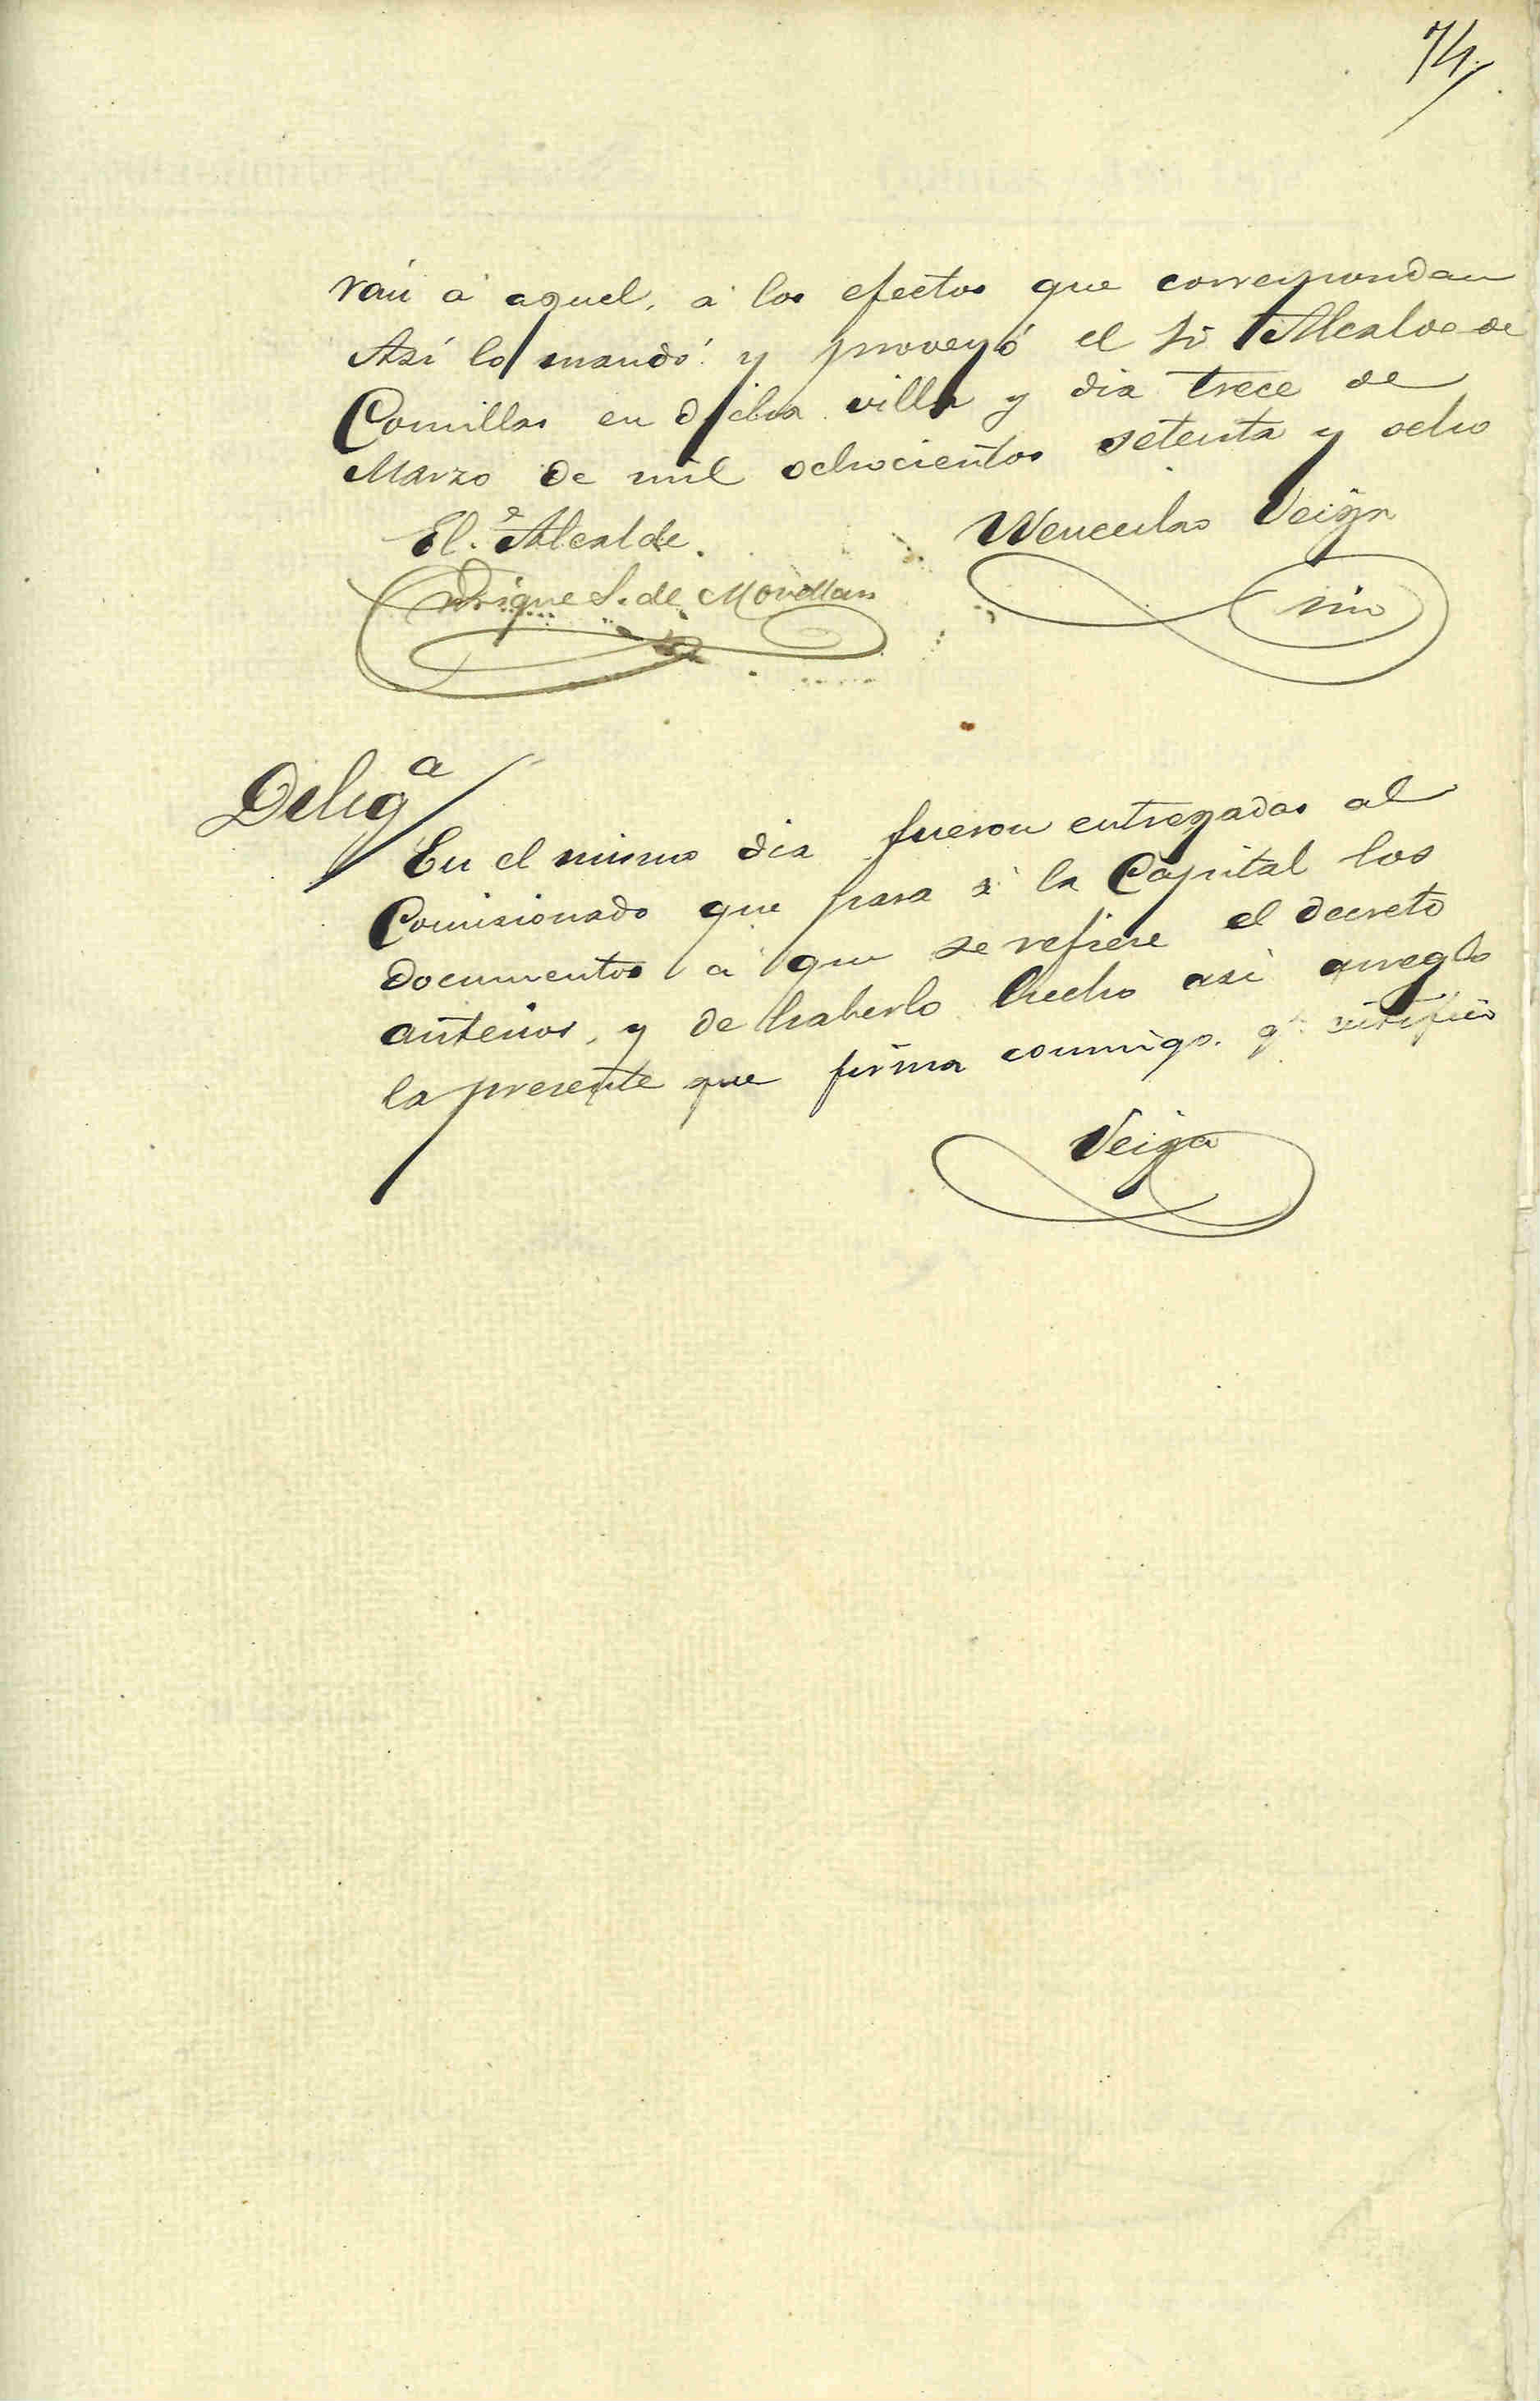 74
rán á aquel, á los efectos que correspondan
Así lo mandó y proveyó el Sr Alcalde de
Comillas en dicha villa y dia trece de
Marzo de mil ochocientos setenta y ocho
El Alcalde
Wenceslao Veiga
Enrique S. de Movellan
Delig.a
En el mismo dia fueron entregadas al
Comisionado que pasa á la Capital los
documentos á que se refiere el decreto
anterior, y de haberlo hecho así arreglo
la presente que firma conmigo. q.e certifico
Veiga